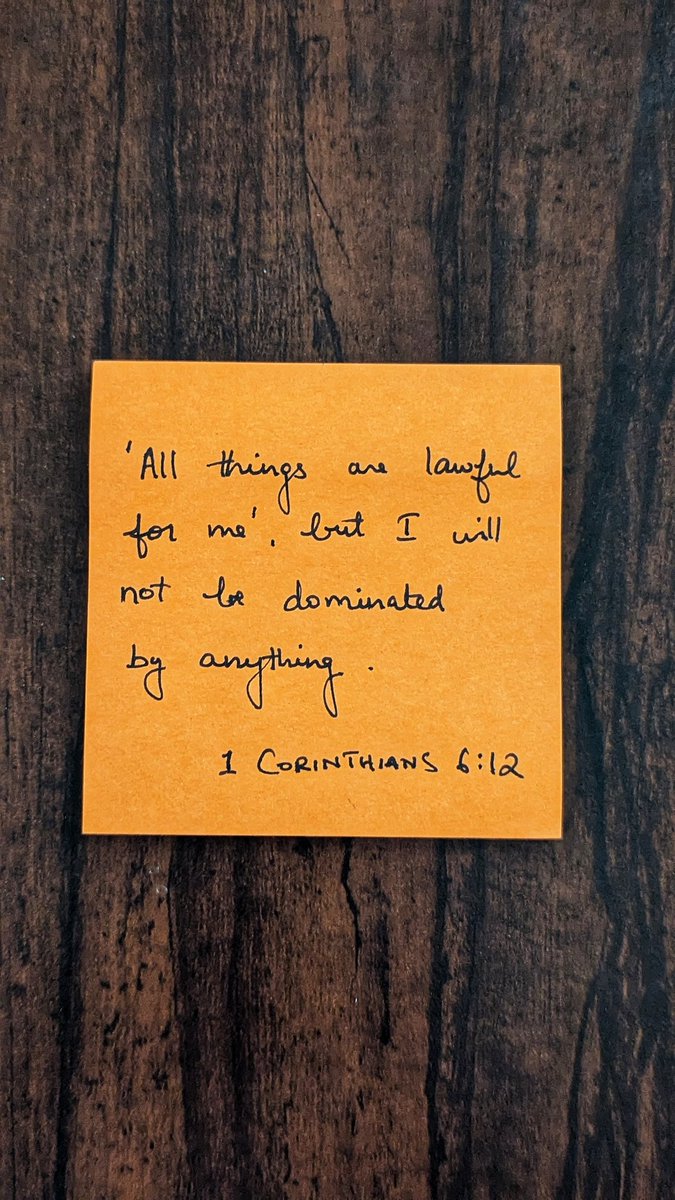 'All things are lawful
for me', but I will
not be dominated
by anything.
1 CORINTHIANS 6:12